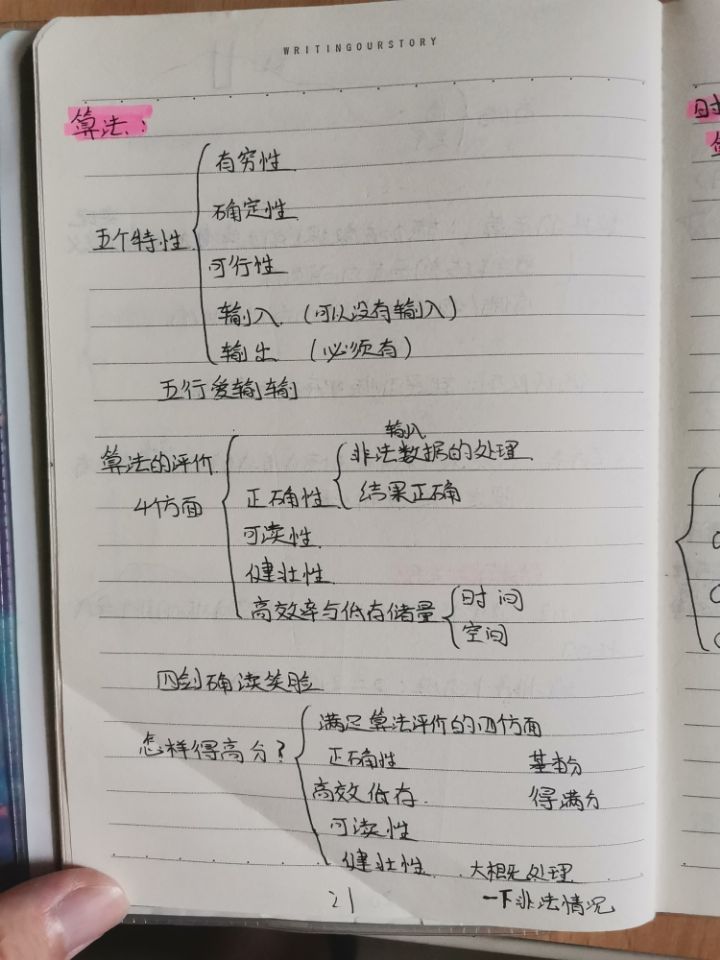 WRITINGOURSTORY
算法：
有穷性
确定性
五个特性
可行性
输入 (可以没有输入)
输出 (必须有)
五行爱输输
输入
算法的评价
非法数据的处理
4个方面
正确性
结果正确
可读性
健壮性
高效率与低存储量
时间
空间
四剑确读笑脸
满足算法评价的四方面
怎样得高分？
正确性 基本分
高效低存 得满分
可读性
健壮性 处理
一下非法情况
21
时